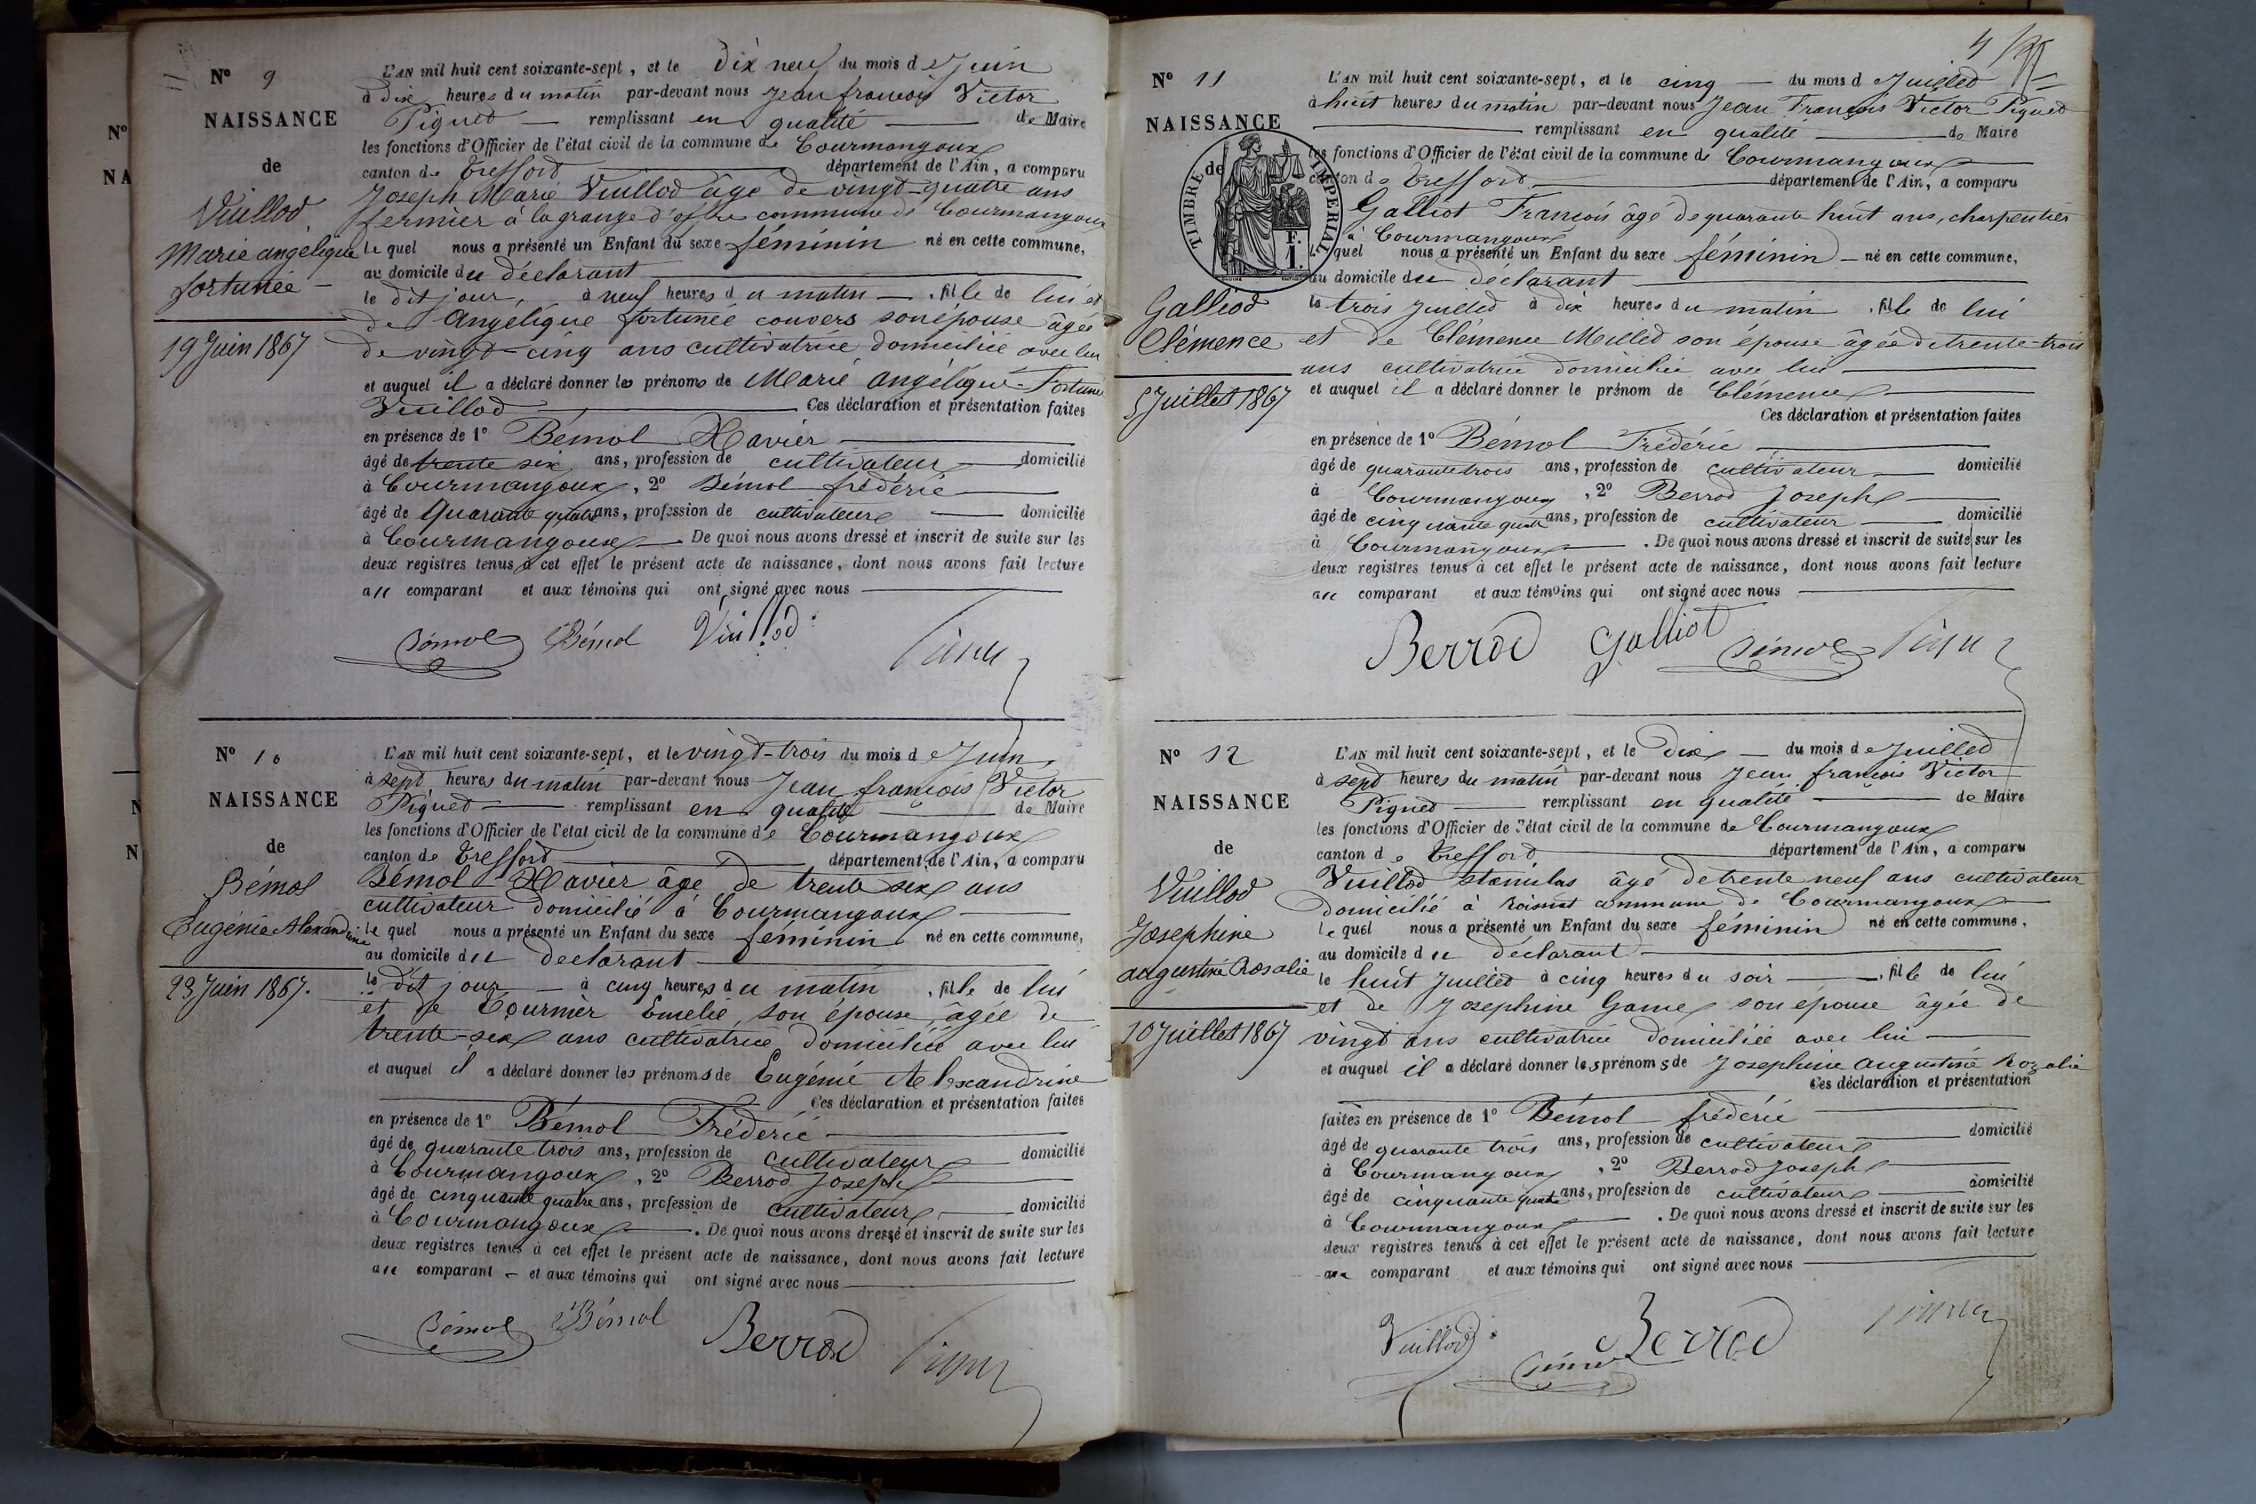 N° 9
NAISSANCE
de
Vuillod
Marie angélique
fortunée
19 Juin 1867
L'AN mil huit cent soixante-sept, et le dix neuf du mois de Juin
à dix heures du matin par-devant nous Jean françois Victor
Piquet remplissant en qualité de Maire
les fonctions d'Officier de l'état civil de la commune de Courmangoux
canton de Treffort département de l'Ain, a comparu
Joseph Marie Vuillod âgé de vingt-quatre ans
fermier à la grange d' commune de Courmangoux
le quel nous a présenté un Enfant du sexe féminin né en cette commune,
au domicile du déclarant
le dit jour, à neuf heures du matin . fille de lui et
de Angélique fortunée convers son épouse âgée
de vingt-cinq ans cultivatrice domiciliée avec lui
et auquel il a déclaré donner les prénoms de Marie angélique Fortunée
Vuillod Ces déclaration et présentation faites
en présence de 1° Bémol Xavier
âgé de trente six ans, profession de cultivateur domicilié
à Courmangoux, 2° Bémol frédéric
âgé de Quarante quatre ans, profession de cultivateur domicilié
à Courmangoux De quoi nous avons dressé et inscrit de suite sur les
deux registres tenus à cet effet le présent acte de naissance, dont nous avons fait lecture
au comparant et aux témoins qui ont signé avec nous
Bémol Bémol Vuillod Piquet
N° 10
NAISSANCE
de
Bémol
Eugénie Alexandrine
23 Juin 1867.
L'AN mil huit cent soixante-sept, et le vingt-trois du mois de Juin,
à sept heures du matin par-devant nous Jean françois Victor
Piquet remplissant en qualité de Maire
les fonctions d'Officier de l'état civil de la commune de Courmangoux
canton de Treffort département de l'Ain, a comparu
Bémol Xavier âgé de trente six ans
cultivateur domicilié à Courmangoux
le quel nous a présenté un Enfant du sexe féminin né en cette commune,
au domicile du declarant
le dit jour à cinq heures du matin . fille de lui
et de Tournier Emelie, son épouse, âgée de
trente-six ans cultivatrice domiciliée avec lui
et auquel il a déclaré donner les prénoms de Eugénie Alexandrine
Ces déclaration et présentation faites
en présence de 1° Bémol Frédéric
âgé de quarante trois ans, profession de cultivateur domicilié
à Courmangoux, 2° Berrod Joseph
âgé de cinquante quatre ans, profession de cultivateur domicilié
à Courmangoux . De quoi nous avons dressé et inscrit de suite sur les
deux registres tenus à cet effet le présent acte de naissance, dont nous avons fait lecture
au comparant et aux témoins qui ont signé avec nous
Bémol Bémol Berrod Piquet
N° 11
NAISSANCE
de
TIMBRE IMPERIAL
F.
1.
Galliod
Clémence
5 Juillet 1867
L'AN mil huit cent soixante-sept, et le cinq du mois de Juillet
à huit heures du matin par-devant nous Jean François Victor Piquet
remplissant en qualité de Maire
les fonctions d'Officier de l'état civil de la commune de Courmangoux
canton de Treffort département de l'Ain, a comparu
Galliot François âgé de quarante huit ans, charpentier
à Courmangoux
le quel nous a présenté un Enfant du sexe féminin né en cette commune,
au domicile du déclarant
le trois Juillet à dix heures du matin . fille de lui
et de Clémence Millet son épouse âgée de trente-trois
ans cultivatrice domiciliée avec lui
et auquel il a déclaré donner le prénom de Clémence
Ces déclaration et présentation faites
en présence de 1° Bémol Frédéric
âgé de quarante trois ans, profession de cultivateur domicilié
à Courmangoux, 2° Berrod Joseph
âgé de cinquante quatre ans, profession de cultivateur domicilié
à Courmangoux . De quoi nous avons dressé et inscrit de suite sur les
deux registres tenus à cet effet le présent acte de naissance, dont nous avons fait lecture
au comparant et aux témoins qui ont signé avec nous
Berrod Galliot Bémol Piquet
N° 12
NAISSANCE
de
Vuillod
Josephine
augustine Rosalie
10 Juillet 1867
L'AN mil huit cent soixante-sept, et le Dix du mois de Juillet
à sept heures du matin par-devant nous Jean françois Victor
Piquet remplissant en qualité de Maire
les fonctions d'Officier de l'état civil de la commune de Courmangoux
canton de Treffort département de l'Ain, a comparu
Vuillod stanislas âgé de trente neuf ans cultivateur
domicilié à Roissiat commune de Courmangoux
le quel nous a présenté un Enfant du sexe féminin né en cette commune,
au domicile du déclarant
le huit Juillet à cinq heures du soir . fille de lui
et de Josephine Game son épouse âgée de
vingt ans cultivatrice domiciliée avec lui
et auquel il a déclaré donner les prénoms de Josephine augustine Rozalie
Ces déclaration et présentation
faites en présence de 1° Bémol frédéric
âgé de quarante trois ans, profession de cultivateur domicilié
à Courmangoux, 2° Berrod Joseph
âgé de cinquante quatre ans, profession de cultivateur domicilié
à Courmangoux . De quoi nous avons dressé et inscrit de suite sur les
deux registres tenus à cet effet le présent acte de naissance, dont nous avons fait lecture
au comparant et aux témoins qui ont signé avec nous
Vuillod Bémol Berrod Piquet